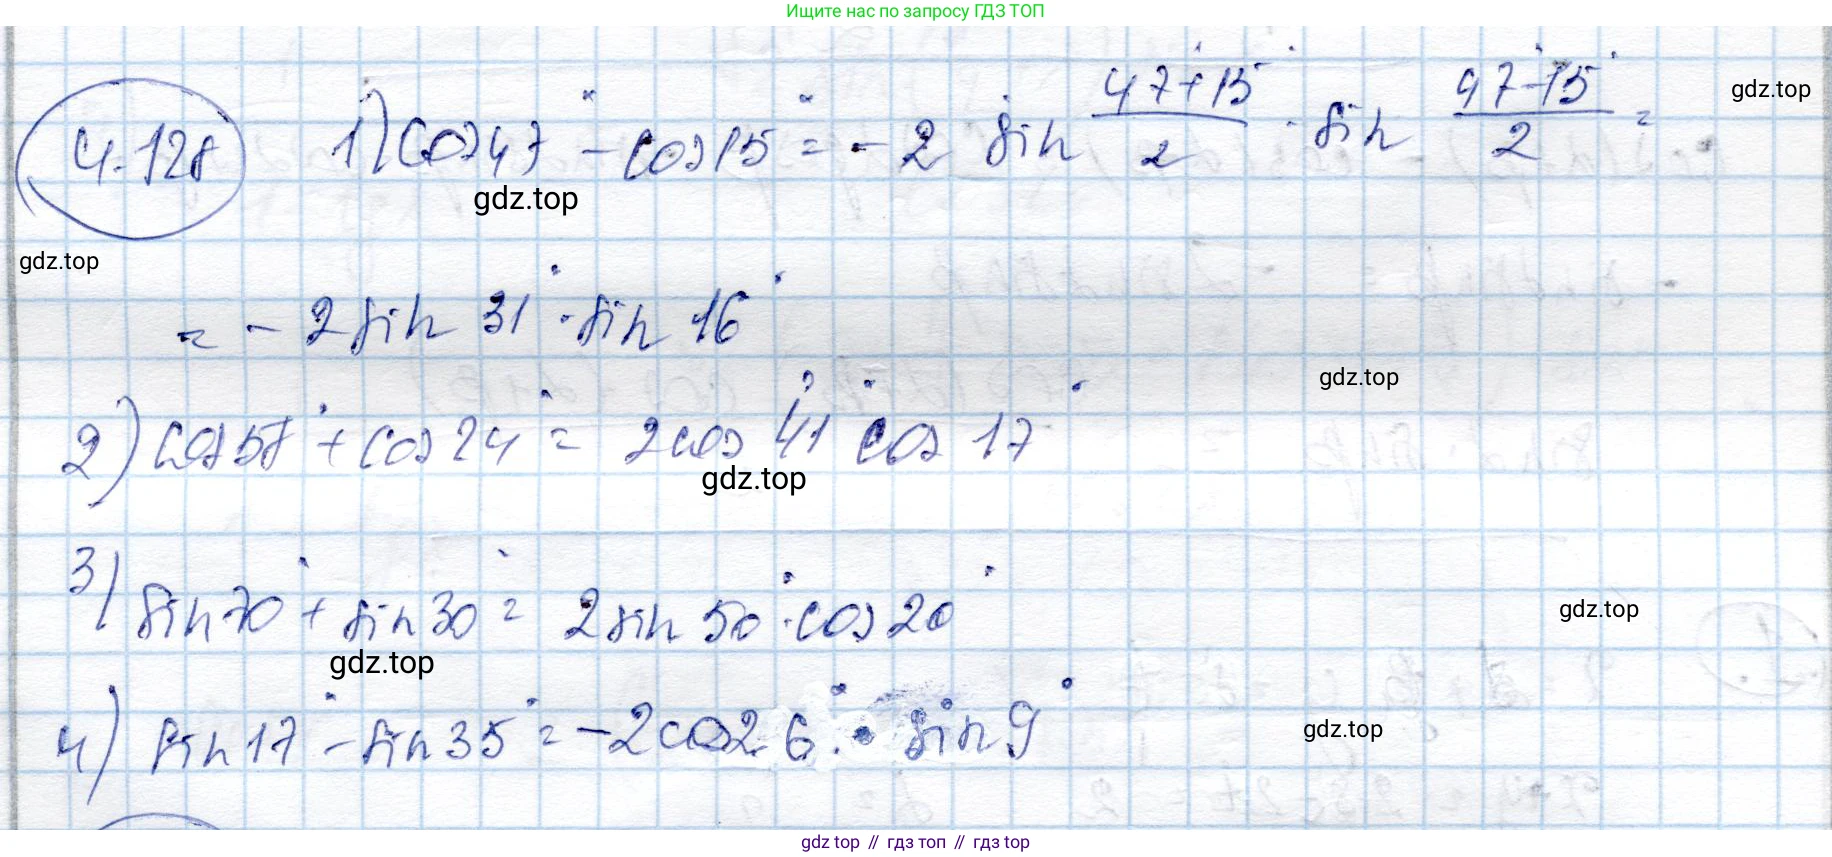 Ищите нас по запросу ГДЗ ТОП
4.128 1) cos47° - cos15° = -2 sin (47°+15°)/2 · sin (47°-15°)/2 =
gdz.top
gdz.top
gdz.top
= -2 sin 31° · sin 16°
gdz.top
2) cos 57° + cos 24° = 2cos 41° cos 17°
gdz.top
3) sin70° + sin30° = 2sin 50° · cos20°
gdz.top
gdz.top
4) sin17° - sin35° = -2cos26° · sin9°
gdz.top
gdz top // гдз топ // гдз top